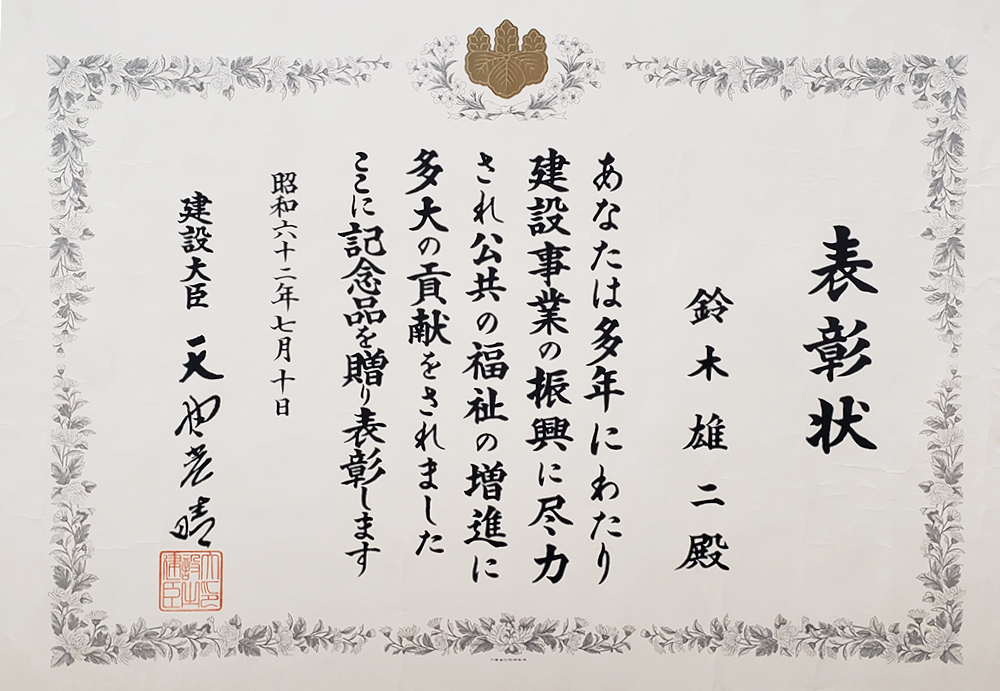 表彰状
鈴木雄二殿
あなたは多年にわたり
建設事業の振興に尽力
され公共の福祉の増進に
多大の貢献をされました
ここに記念品を贈り表彰します
昭和六十二年七月十日
建設大臣 天野光晴
建設大臣之印